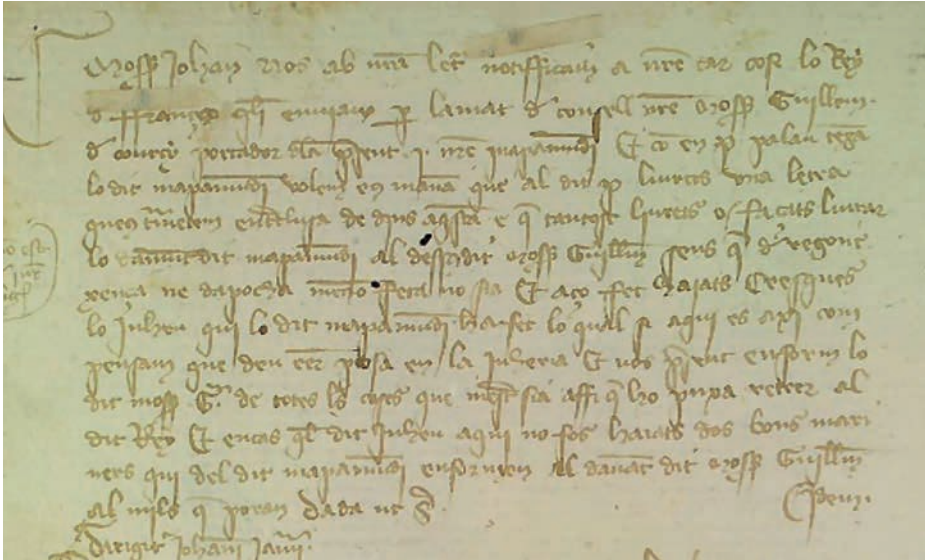 Mossen Johan nos ab nrã letr̃ notifficam̃ a nrẽ car cosi lo Rey
d ffrança qli enviam p lamat d consell nrẽ mossen Guillem
d courcy portador dla p̃sent .j. nrẽ mapamundi Et cõ en p̃ palau tegã
lo dit mapamundi volem eus manã que al dit p̃ liurets una letra
queus trametem entrelusa de dins aq̃sta e q̃ tantost liurets o façats liurar
lo dit mapamundi al desusdit mossen Guillm̃ sens q̃ d vegonç
xença ne dapocha no sia Et aço fet haiats Cresques
lo Juheu qui lo dit mapamundi ha fet lo qual si aqui es axi com
pensam que deu eer̃ p̃sa en la Juheria Et vos p̃sent enform lo
dit mossen G. de totes les coses que mest̃ sia affi q̃ ho puxa referer al
dit Rey Et encas ql dit Juheu aqui no fos haiats dos bons mari
ners qui del dit mapamundi enformen al dauat̃ dit mossen Guillm̃
al mils q̃ poran Dada ut s̃.
Idem.
Dirigit̃ Johani Januar̃.